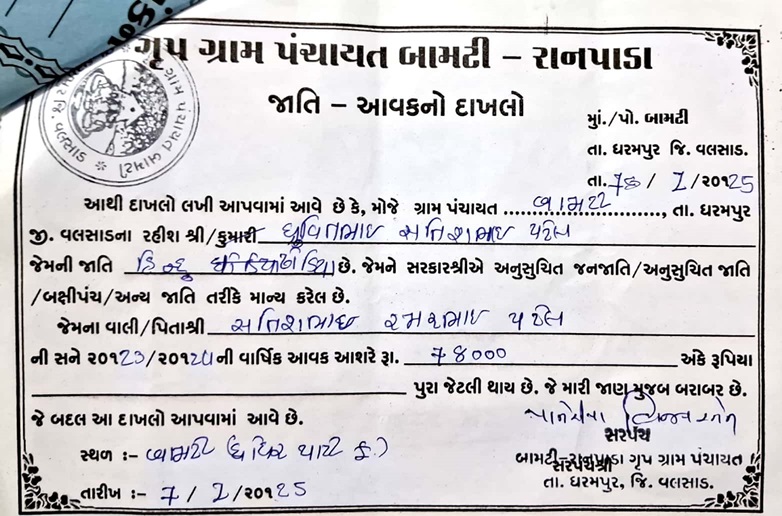 ગૃપ ગ્રામ પંચાયત બામટી – રાનપાડા
જાતિ – આવકનો દાખલો
મું./પો. બામટી
તા. ધરમપુર જિ. વલસાડ.
તા. / 1/૨૦૧25
આથી દાખલો લખી આપવામાં આવે છે કે, મોજે ગ્રામ પંચાયત બામટી, તા. ધરમપુર
જી. વલસાડના રહીશ શ્રી/કુમારી ધ્રુવિતભાઇ સતિશભાઇ પટેલ
જેમની જાતિ હિન્દુ છે. જેમને સરકારશ્રીએ અનુસુચિત જનજાતિ/અનુસુચિત જાતિ
/બક્ષીપંચ/અન્ય જાતિ તરીકે માન્ય કરેલ છે.
જેમના વાલી/પિતાશ્રી સતિશભાઇ રમણભાઇ પટેલ
ની સને ૨૦૧23/૨૦૧24ની વાર્ષિક આવક આશરે રૂા. 78000 અંકે રૂપિયા
પુરા જેટલી થાય છે. જે મારી જાણ મુજબ બરાબર છે.
જે બદલ આ દાખલો આપવામાં આવે છે.
સ્થળ :- બામટી
સરપંચ
બામટી-રાનપાડા ગૃપ ગ્રામ પંચાયત
સરપંચશ્રી
તા. ધરમપુર, જિ. વલસાડ.
તારીખ :- 7/1/૨૦૧25